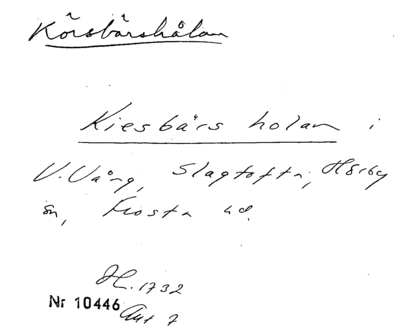 Körsbärshålan
Kiesbärs holan i
V. Vång, Slagtofta, Hörby
sn, Frosta hd.
H. 1732
Nr 10446 Akt 7